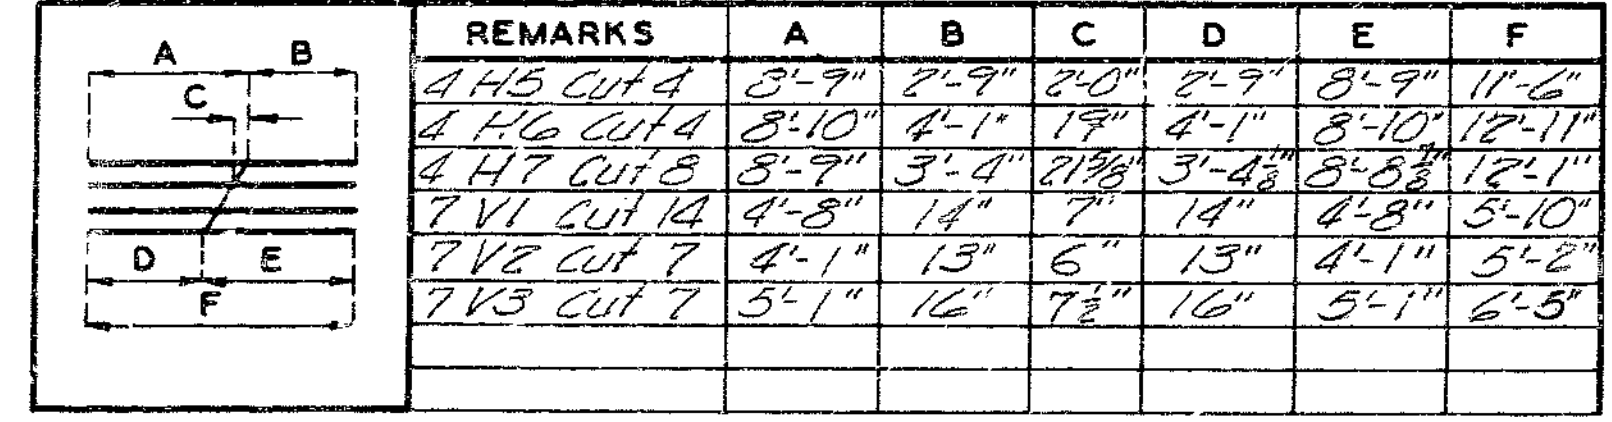 A B
C
D E
F
REMARKS A B C D E F
4 H5 Cut 4 8'-9" 2'-9" 2'-0" 2'-9" 8'-9" 11'-6"
4 H6 Cut 4 8'-10" 4'-1" 19" 4'-1" 8'-10" 12'-11"
4 H7 Cut 8 8'-9" 3'-4" 21 5/8" 3'-4 1/8" 8'-8 7/8" 12'-1"
7 V1 Cut 14 4'-8" 14" 7" 14" 4'-8" 5'-10"
7 V2 Cut 7 4'-1" 13" 6" 13" 4'-1" 5'-2"
7 V3 Cut 7 5'-1" 16" 7 1/2" 16" 5'-1" 6'-5"